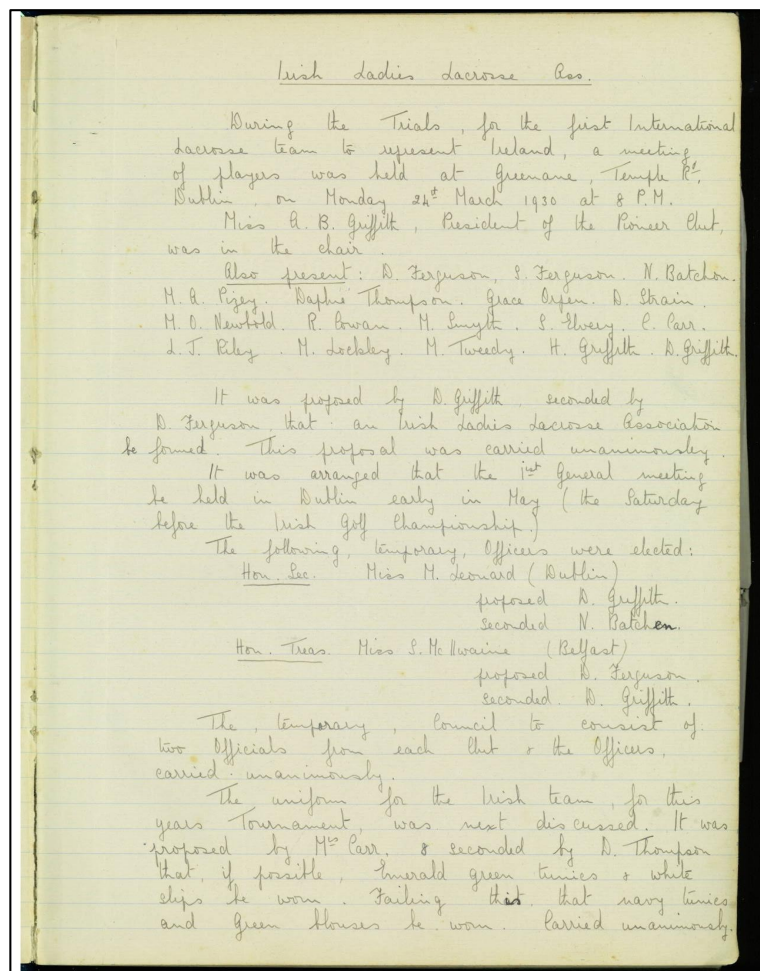 Irish Ladies Lacrosse Ass.
During the Trials, for the first International
Lacrosse team to represent Ireland, a meeting
of players was held at Greenane, Temple Rd,
Dublin, on Monday 24th March 1930 at 8 P.M.
Miss A. B. Griffith, President of the Pioneer Club,
was in the chair.
Also present: D. Ferguson, S. Ferguson. N. Batchen.
M. A. Pizey. Daphne Thompson. Grace Orpen. D. Strain.
M. O. Newbold. R. Cowan. M. Smyth. S. Elvery. C. Carr.
L. J. Riley. M. Lockley. M. Tweedy. H. Griffith. D. Griffith.
It was proposed by D. Griffith, seconded by
D. Ferguson, that an Irish Ladies Lacrosse Association
be formed. This proposal was carried unanimously.
It was arranged that the 1st General meeting
be held in Dublin early in May (the Saturday
before the Irish Golf Championship.)
The following, temporary, Officers were elected:
Hon. Sec. Miss M. Leonard (Dublin)
proposed D. Griffith.
seconded N. Batchen.
Hon. Treas. Miss S. McIlwaine (Belfast)
proposed D. Ferguson.
seconded. D. Griffith.
The, temporary, Council to consist of
two Officials from each Club & the Officers,
carried unanimously.
The uniform for the Irish team, for this
years Tournament, was next discussed. It was
proposed by Mrs Carr. & seconded by D. Thompson
that, if possible, Emerald green tunics & white
slips be worn. Failing this that navy tunics
and Green blouses be worn. Carried unanimously.